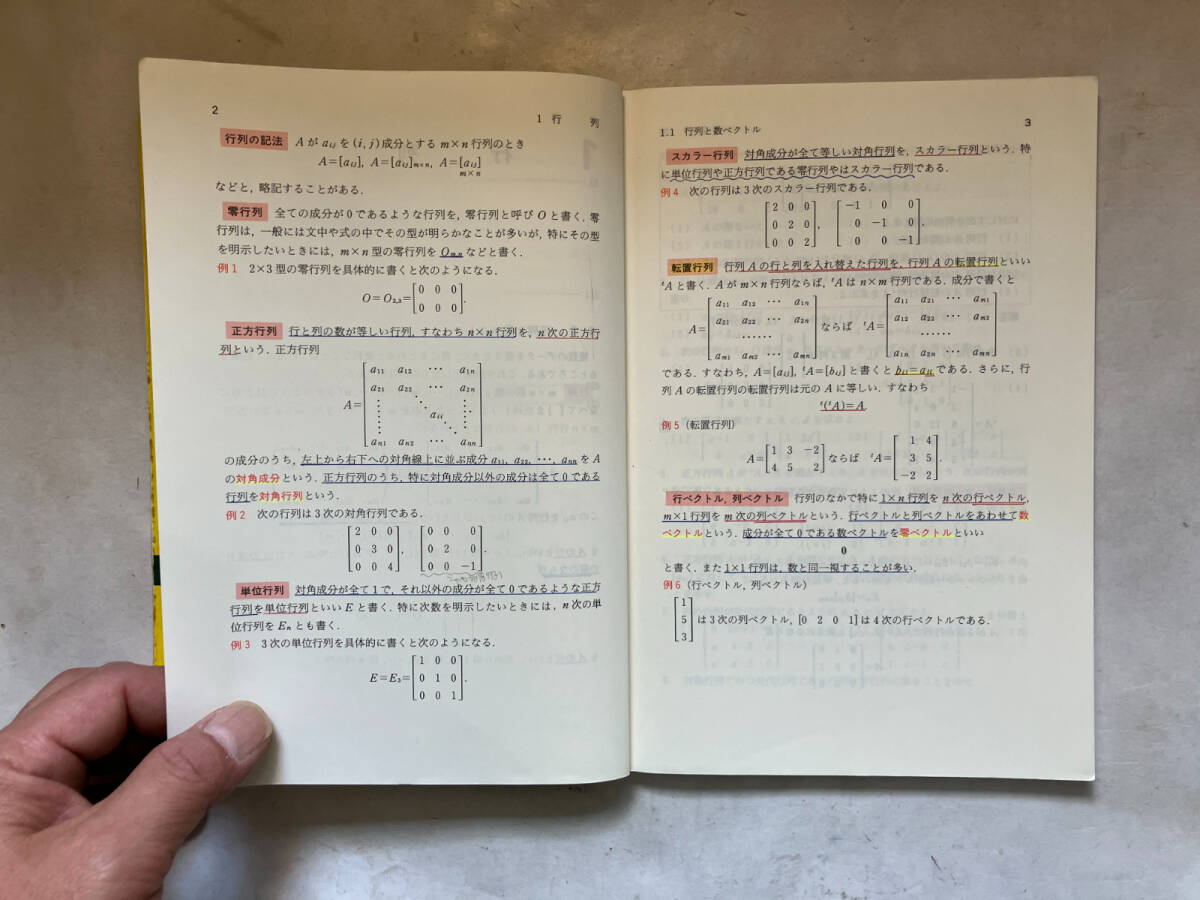 2
1 行 列
行列の記法 A が aij を (i, j) 成分とする m×n 行列のとき
A=[aij], A=[aij]m×n, A=[aij]
m×n
などと, 略記することがある.
零行列 全ての成分が0であるような行列を, 零行列と呼び O と書く. 零
行列は, 一般には文中や式の中でその型が明らかなことが多いが, 特にその型
を明示したいときには, m×n 型の零行列を Omn などと書く.
例1 2×3 型の零行列を具体的に書くと次のようになる.
O=O2,3=[0 0 0
0 0 0].
正方行列 行と列の数が等しい行列, すなわち n×n 行列を, n 次の正方行
列という. 正方行列
a11 a12 ⋯ a1n
a21 a22 ⋯ a2n
A= ⋮ ⋮ aii ⋮
an1 an2 ⋯ ann
の成分のうち, 左上から右下への対角線上に並ぶ成分 a11, a22, ⋯, ann を A
の対角成分という. 正方行列のうち, 特に対角成分以外の成分は全て0である
行列を対角行列という.
例2 次の行列は3次の対角行列である.
[2 0 0 [0 0 0
0 3 0 , 0 2 0 .
0 0 4] 0 0 -1]
単位行列 対角成分が全て1で, それ以外の成分が全て0であるような正方
行列を単位行列といい E と書く. 特に次数を明示したいときには, n 次の単
位行列を En とも書く.
例3 3次の単位行列を具体的に書くと次のようになる.
[1 0 0
E=E3= 0 1 0 .
0 0 1]
1.1 行列と数ベクトル
3
スカラー行列 対角成分が全て等しい対角行列を, スカラー行列という. 特
に単位行列や正方行列である零行列やはスカラー行列である.
例4 次の行列は3次のスカラー行列である.
[2 0 0 [-1 0 0
0 2 0 , 0 -1 0 .
0 0 2] 0 0 -1]
転置行列 行列 A の行と列を入れ替えた行列を, 行列 A の転置行列といい
tA と書く. A が m×n 行列ならば, tA は n×m 行列である. 成分で書くと
a11 a12 ⋯ a1n a11 a21 ⋯ am1
a21 a22 ⋯ a2n a12 a22 ⋯ am2
A= ⋯⋯ ならば tA= ⋯⋯
am1 am2 ⋯ amn a1n a2n ⋯ amn
である. すなわち, A=[aij], tA=[bij] と書くと bij=aji である. さらに, 行
列 A の転置行列の転置行列は元の A に等しい. すなわち
t(tA)=A.
例5 (転置行列)
A=[1 3 -2 ならば tA=[1 4
4 5 2] 3 5 .
-2 2]
行ベクトル, 列ベクトル 行列のなかで特に 1×n 行列を n 次の行ベクトル,
m×1 行列を m 次の列ベクトルという. 行ベクトルと列ベクトルをあわせて数
ベクトルという. 成分が全て0である数ベクトルを零ベクトルといい
0
と書く. また 1×1 行列は, 数と同一視することが多い.
例6 (行ベクトル, 列ベクトル)
[1
5 は3次の列ベクトル, [0 2 0 1] は4次の行ベクトルである.
3]